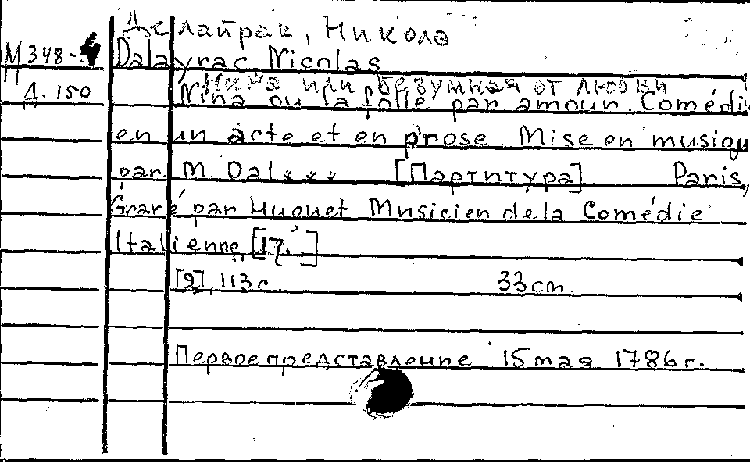 Делайрак, Никола
М 348-4 Dalayrac, Nicolas
Нина или безумная от любви
Д. 150 Nina ou la folle par amour Comédie
en un acte et en prose Mise en musiqu
par M Dal*** [Партитура] Paris,
Gravé par Huguet Musicien de la Comédie
Italienne, [17. ]
[2], 113 с 33 cm
Первое представление 15 мая 1786 г.